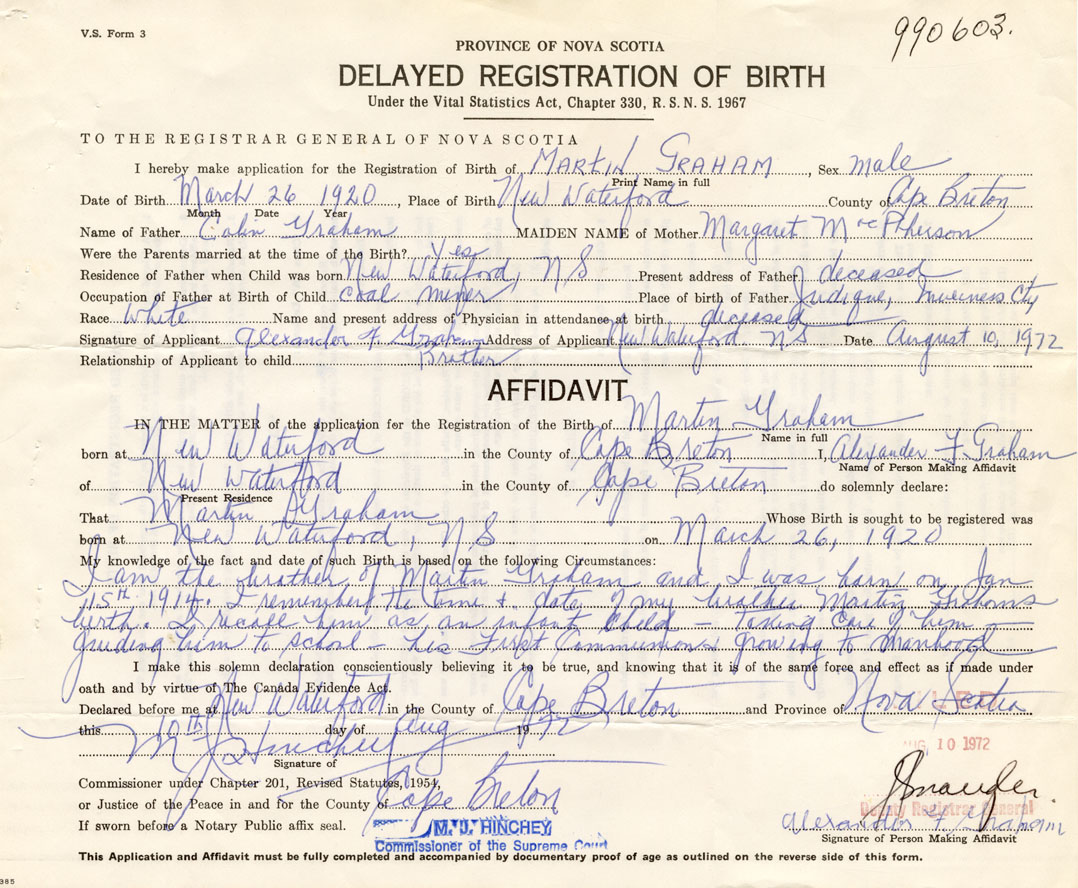 V.S. Form 3
990603.
PROVINCE OF NOVA SCOTIA
DELAYED REGISTRATION OF BIRTH
Under the Vital Statistics Act, Chapter 330, R. S. N. S. 1967
TO THE REGISTRAR GENERAL OF NOVA SCOTIA
I hereby make application for the Registration of Birth of MARTIN GRAHAM, Sex male
Print Name in full
Date of Birth March 26 1920, Place of Birth New Waterford County of Cape Breton
Month Date Year
Name of Father Colin Graham MAIDEN NAME of Mother Margaret McPherson
Were the Parents married at the time of the Birth? Yes
Residence of Father when Child was born New Waterford, NS Present address of Father deceased
Occupation of Father at Birth of Child Coal miner Place of birth of Father Judique, Inverness Cty
Race White Name and present address of Physician in attendance at birth deceased
Signature of Applicant Alexander F Graham Address of Applicant New Waterford NS Date August 10, 1972
Relationship of Applicant to child Brother
AFFIDAVIT
IN THE MATTER of the application for the Registration of the Birth of Martin Graham
Name in full
born at New Waterford in the County of Cape Breton I, Alexander F Graham
Name of Person Making Affidavit
of New Waterford in the County of Cape Breton do solemnly declare:
Present Residence
That Martin Graham Whose Birth is sought to be registered was
born at New Waterford, NS on March 26, 1920
My knowledge of the fact and date of such Birth is based on the following Circumstances:
I am the brother of Martin Graham and I was born on Jan
15th 1914. I remember the time & date of my brother Martin Grahams
birth. I recall him as an infant child – Taking care of him –
guiding him to school – his First Communion & growing to manhood
I make this solemn declaration conscientiously believing it to be true, and knowing that it is of the same force and effect as if made under
oath and by virtue of The Canada Evidence Act.
Declared before me at New Waterford in the County of Cape Breton and Province of Nova Scotia
this 10th day of Aug 1972
AUG 10 1972
M J Hinchey
Signature of
Commissioner under Chapter 201, Revised Statutes, 1954,
or Justice of the Peace in and for the County of Cape Breton
Deputy Registrar General
If sworn before a Notary Public affix seal.
M. J. HINCHEY
Commissioner of the Supreme Court
Alexander F Graham
Signature of Person Making Affidavit
This Application and Affidavit must be fully completed and accompanied by documentary proof of age as outlined on the reverse side of this form.
385